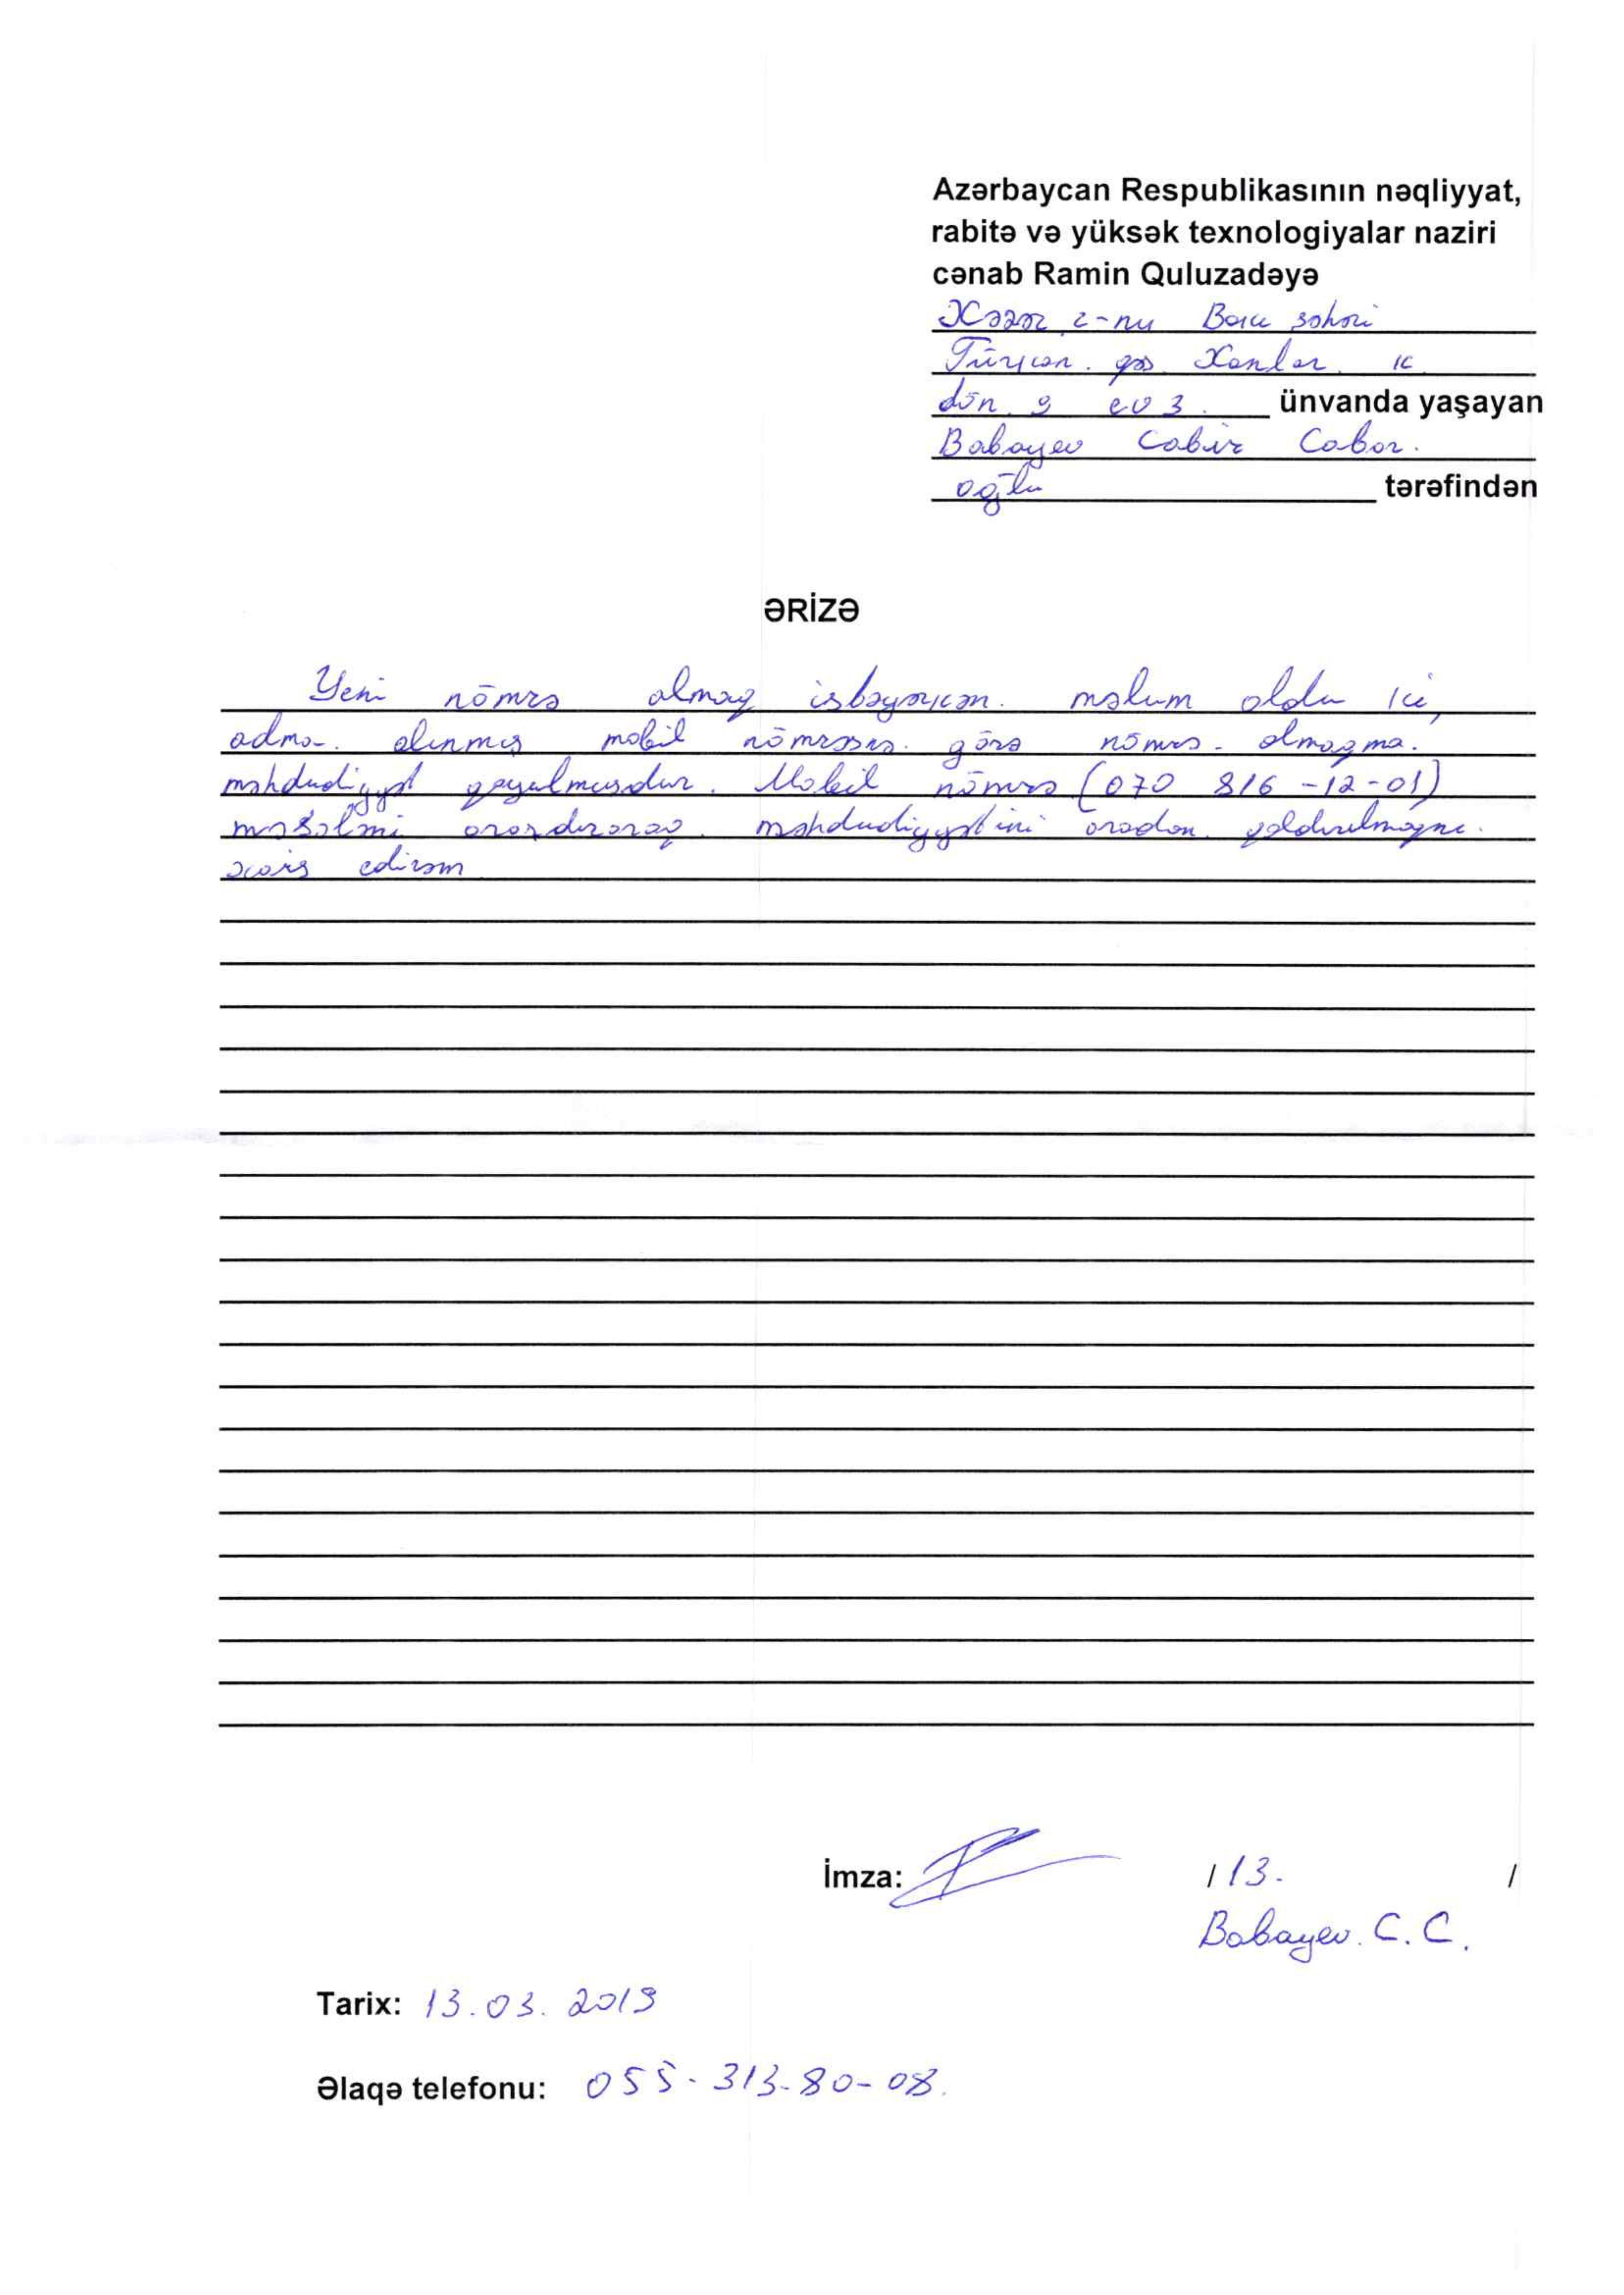 Azərbaycan Respublikasının nəqliyyat,
rabitə və yüksək texnologiyalar naziri
cənab Ramin Quluzadəyə
Xəzər r-nu Bakı şəhəri
Türkan qəs. Xanlar k.
dön. 9 ev 3. ünvanda yaşayan
Babayev Cabir Cabar.
oğlu tərəfindən
ƏRİZƏ
Yeni nömrə almaq istəyərkən. məlum oldu ki,
adıma. alınmış mobil nömrəsinə. görə nömrə. almağıma.
məhdudiyyət qoyulmuşdur. Mobil nömrə (070 816-12-01)
məsələni araşdıraraq. məhdudiyyətini aradan. qaldırılmağını.
xaiş edirəm
İmza: / 13. /
Babayev. C. C.
Tarix: 13.03.2019
Əlaqə telefonu: 055-313-80-08.